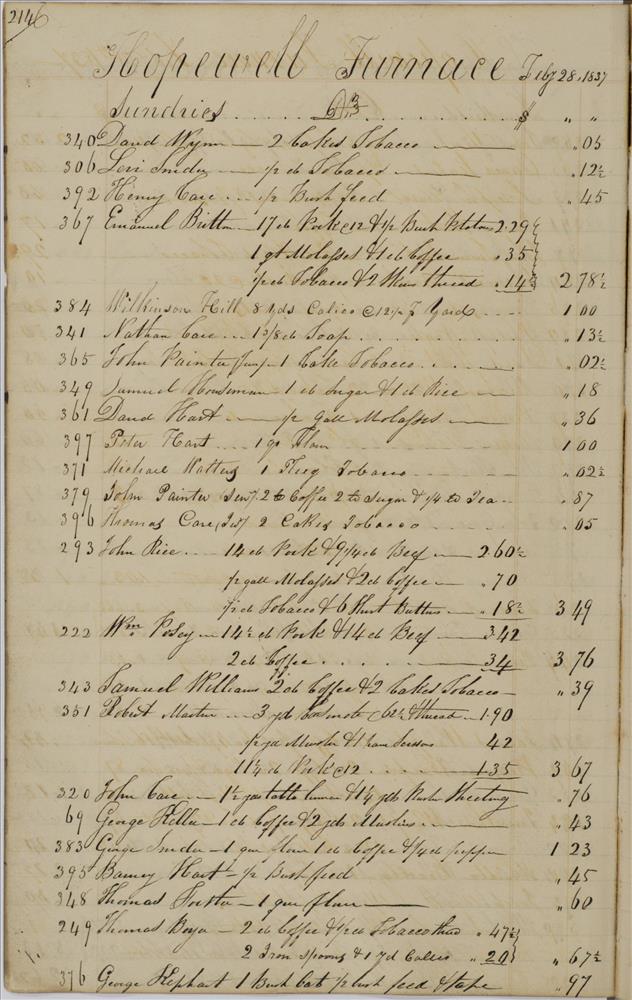 2146
Hopewell Furnace Feby 28, 1837
Sundries Dr $ " "
340 David Wynn 2 Cakes Tobacco " 05
306 Levi Snider ½ lb Tobacco " 12½
392 Henry Care ½ Bush feed " 45
367 Emanuel Britton 17 lb Pork @ 12 & ½ Bush Potatoes 2.29
1 qt Molasses & 1 lb Coffee " 35
½ lb Tobacco & 2 Skins thread " 14½ 2 78½
384 Wilkinson Hill 8 yds Calico @ 12½ Yards 1 00
341 Nathan Care 1 3/8 lb Soap " 13½
365 John Painter Junr 1 Cake Tobacco " 02½
349 Samuel Houseman 1 lb Sugar & 1 lb Rice " 18
361 David Hart ½ Gall Molasses " 36
397 Peter Hart 1 qr Flour 1 00
371 Michael Watters 1 Plug Tobacco " 02½
379 John Painter Senr 2 lb Coffee 2 lb Sugar & 1/4 lb Tea " 87
396 Thomas Care, Jnr 2 Cakes Tobacco " 05
293 John Rice 14 lb Pork & 9 1/4 lb Beef 2.60½
½ gall Molasses & 2 lb Coffee " 70
½ lb Tobacco & 6 Shirt Buttons " 18½ 3 49
222 Wm Posey 14½ lb Pork & 14 lb Beef 3.42
2 lb Coffee 34 3 76
343 Samuel Williams 2 lb Coffee & 2 Cakes Tobacco " 39
351 Robert Martin 3 yd @ 62½ & thread 1.90
½ yd Muslin & 1 Scissors 42
11 1/4 lb Pork @ 12 1.35 3 67
320 John Care 1½ yds table linnen & 1 1/4 yds Sheeting " 76
69 George Keller 1 lb Coffee & 2 yds Muslin " 43
383 George Snider 1 qr flour 1 lb Coffee & 1/4 lb pepper 1 23
395 Barney Hart ½ Bush feed " 45
348 Thomas Foster 1 qr flour " 60
249 Thomas Boyer 2 lb Coffee & ½ lb Tobacco " 47½
2 Iron spoons & 1 yd Calico " 20 " 67½
376 George Kephart 1 Bush Oats ½ bush feed & tape " 97